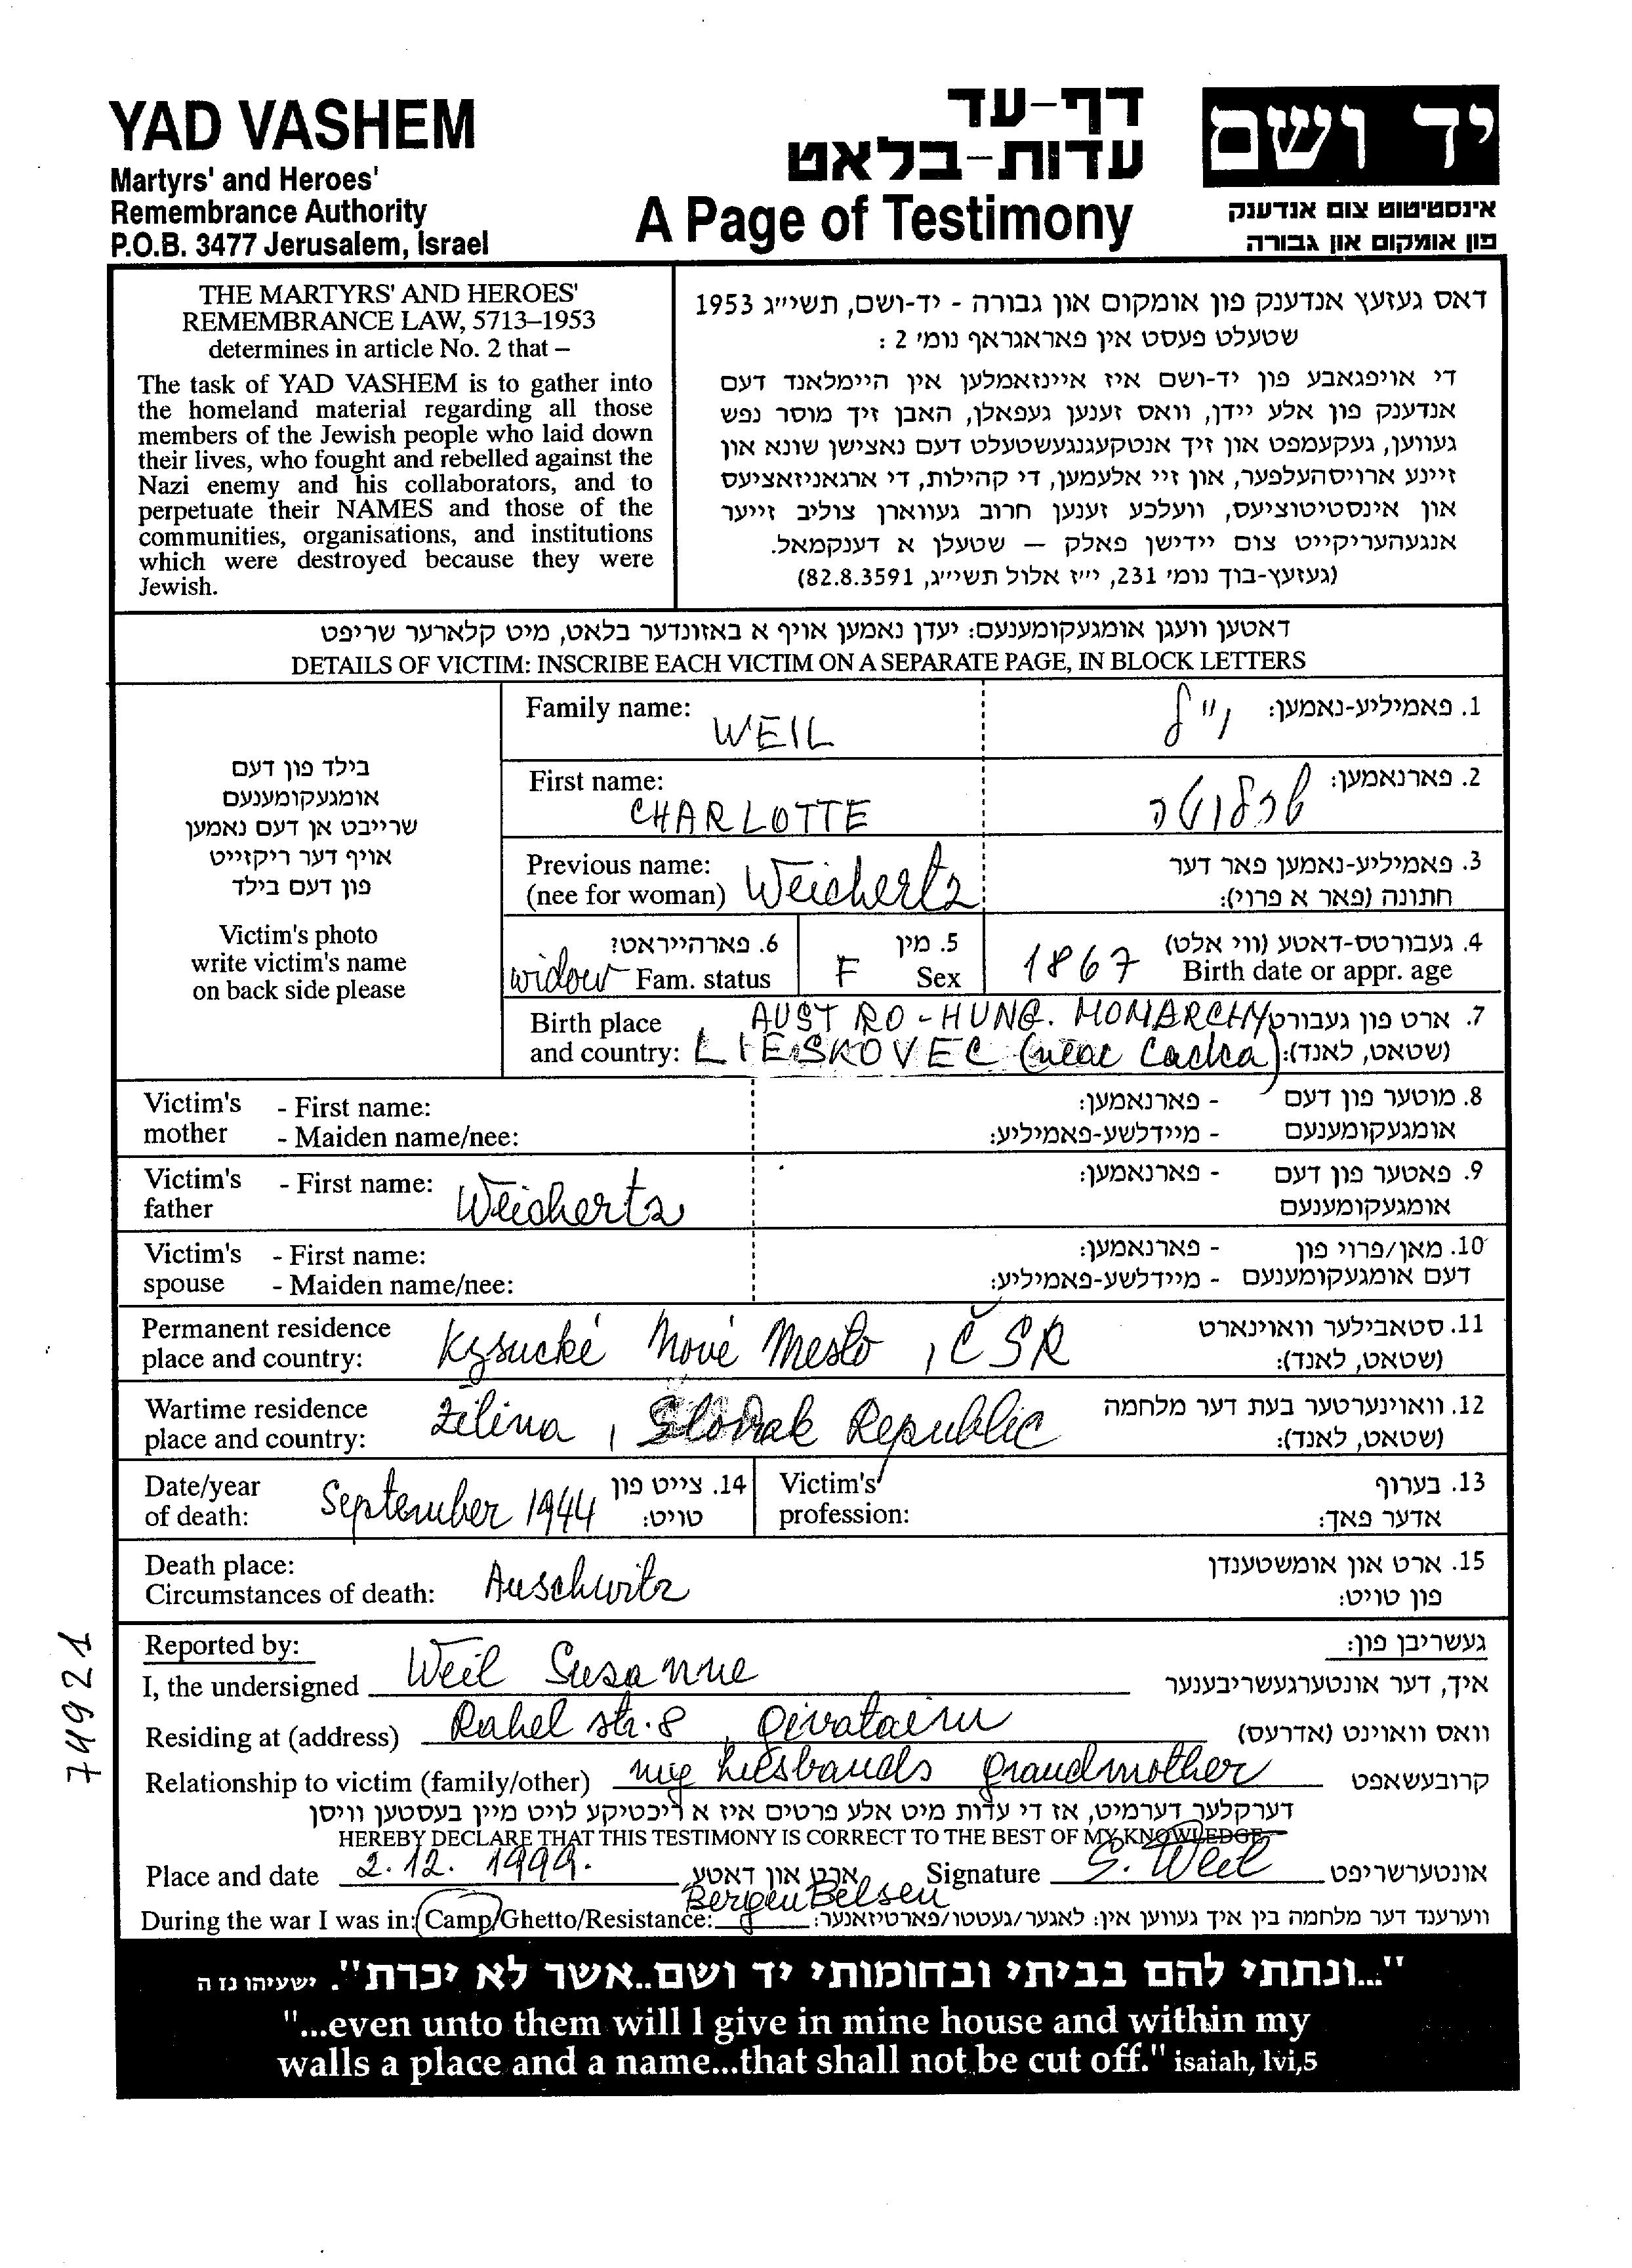 YAD VASHEM
Martyrs' and Heroes'
Remembrance Authority
P.O.B. 3477 Jerusalem, Israel
דף-עד
עדות-בלאט
A Page of Testimony
יד ושם
אינסטיטוט צום אנדענק
פון אומקום און גבורה
THE MARTYRS' AND HEROES'
REMEMBRANCE LAW, 5713–1953
determines in article No. 2 that –
The task of YAD VASHEM is to gather into
the homeland material regarding all those
members of the Jewish people who laid down
their lives, who fought and rebelled against the
Nazi enemy and his collaborators, and to
perpetuate their NAMES and those of the
communities, organisations, and institutions
which were destroyed because they were
Jewish.
דאס געזעץ אנדענק פון אומקום און גבורה - יד-ושם, תשי״ג 1953
שטעלט פעסט אין פאראגראף נומ׳ 2 :
די אויפגאבע פון יד-ושם איז איינזאמלען אין היימלאנד דעם
אנדענק פון אלע יידן, וואס זענען געפאלן, האבן זיך מוסר נפש
געווען, געקעמפט און זיך אנטקעגנגעשטעלט דעם נאצישן שונא און
זיינע ארויסהעלפער, און זיי אלעמען, די קהילות, די ארגאניזאציעס
און אינסטיטוציעס, וועלכע זענען חרוב געווארן צוליב זייער
אנגעהעריקייט צום יידישן פאלק — שטעלן א דענקמאל.
(געזעץ-בוך נומ׳ 231, י״ז אלול תשי״ג, 82.8.3591)
דאטען וועגן אומגעקומענעם: יעדן נאמען אויף א באזונדער בלאט, מיט קלארער שריפט
DETAILS OF VICTIM: INSCRIBE EACH VICTIM ON A SEPARATE PAGE, IN BLOCK LETTERS
בילד פון דעם
אומגעקומענעם
שרייבט אן דעם נאמען
אויף דער ריקזייט
פון דעם בילד
Victim's photo
write victim's name
on back side please
Family name: WEIL וייל 1. פאמיליע-נאמען:
First name: CHARLOTTE שרלוטה 2. פארנאמען:
Previous name: 3. פאמיליע-נאמען פאר דער
(nee for woman) Weichertz חתונה (פאר א פרוי):
6. פארהייראט? 5. מין 4. געבורטס-דאטע (ווי אלט)
widow Fam. status F Sex 1867 Birth date or appr. age
Birth place AUSTRO-HUNG. MONARCHY 7. ארט פון געבורט
and country: LIESKOVEC (near Cadca) (שטאט, לאנד):
Victim's - First name: - פארנאמען: 8. מוטער פון דעם
mother - Maiden name/nee: - מיידלשע-פאמיליע: אומגעקומענעם
Victim's - First name: Weichertz - פארנאמען: 9. פאטער פון דעם
father אומגעקומענעם
Victim's - First name: - פארנאמען: 10. מאן/פרוי פון
spouse - Maiden name/nee: - מיידלשע-פאמיליע: דעם אומגעקומענעם
Permanent residence Kysucké Nové Mesto, ČSR 11. סטאבילער וואוינארט
place and country: (שטאט, לאנד):
Wartime residence Žilina, Slovak Republic 12. וואוינערטער בעת דער מלחמה
place and country: (שטאט, לאנד):
Date/year September 1944 14. צייט פון Victim's 13. בערוף
of death: טויט: profession: אדער פאך:
Death place: Auschwitz 15. ארט און אומשטענדן
Circumstances of death: פון טויט:
74921
Reported by: געשריבן פון:
I, the undersigned Weil Susanne איך, דער אונטערגעשריבענער
Residing at (address) Rahel str. 8, Givataim וואס וואוינט (אדרעס)
Relationship to victim (family/other) my husbands grandmother קרובעשאפט
דערקלער דערמיט, אז די עדות מיט אלע פרטים איז א ריכטיקע לויט מיין בעסטען וויסן
HEREBY DECLARE THAT THIS TESTIMONY IS CORRECT TO THE BEST OF MY KNOWLEDGE
Place and date 2.12. 1999. ארט און דאטע Signature S. Weil אונטערשריפט
During the war I was in: Camp/Ghetto/Resistance: Bergen Belsen ווערענד דער מלחמה בין איך געווען אין: לאגער/געטטו/פארטיזאנער:
"...ונתתי להם בביתי ובחומותי יד ושם..אשר לא יכרת". ישעיהו נז ה
"...even unto them will I give in mine house and within my
walls a place and a name...that shall not be cut off." isaiah, lvi,5